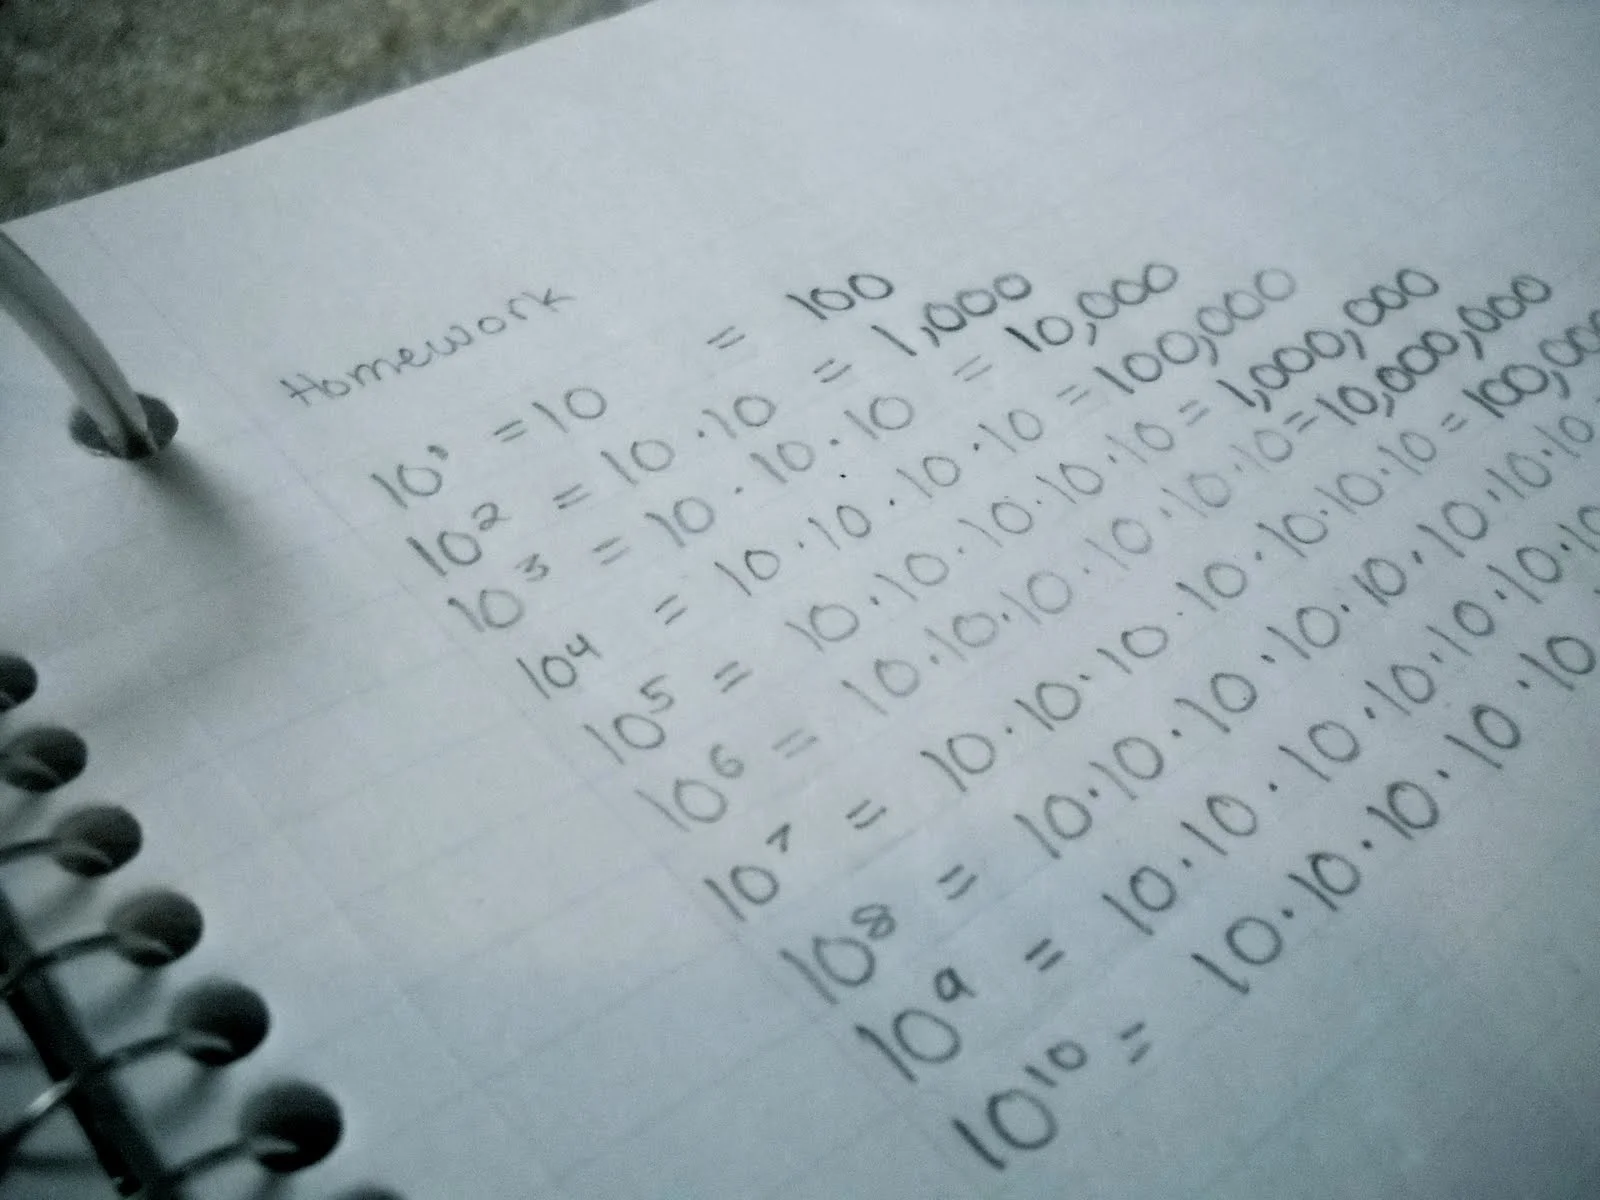 Homework
10¹ = 10 = 100
10² = 10·10 = 1,000
10³ = 10·10·10 = 10,000
10⁴ = 10·10·10·10 = 100,000
10⁵ = 10·10·10·10·10 = 1,000,000
10⁶ = 10·10·10·10·10·10 = 10,000,000
10⁷ = 10·10·10·10·10·10·10 = 100,00
10⁸ = 10·10·10·10·10·10·10·10
10⁹ = 10·10·10·10·10·10·10
10¹⁰ = 10·10·10·10·10